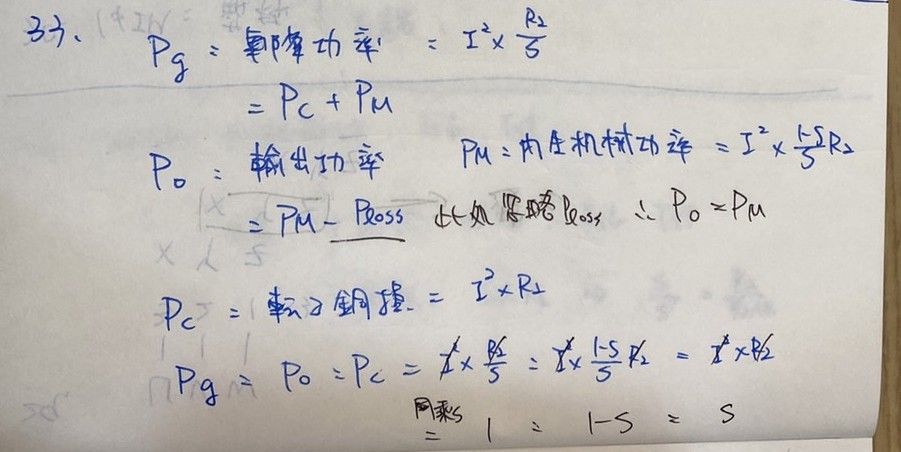 33. Pg : 氣隙功率 = I² × R₂/S
= Pc + PM
Po : 輸出功率 PM : 內生机械功率 = I² × (1-S)/S R₂
= PM - Ploss 此处忽略 Ploss ∴ Po = PM
Pc = 転子銅損 = I² × R₂
Pg : Po : Pc = I² × R₂/S : I² × (1-S)/S R₂ : I² × R₂
同乘S = 1 : 1-S : S